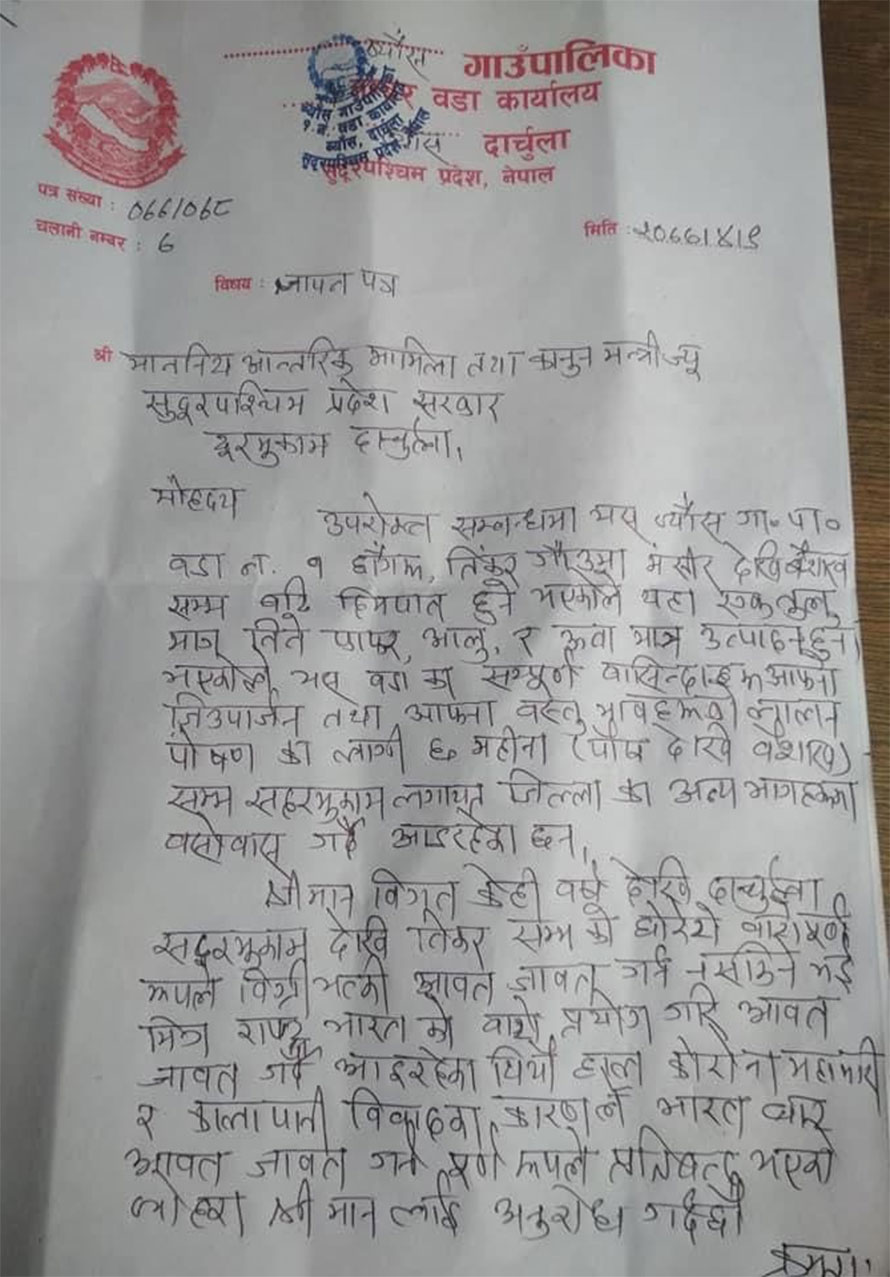 ब्याँस गाउँपालिका
वडा कार्यालय
दार्चुला
सुदूरपश्चिम प्रदेश, नेपाल
पत्र संख्या : ०७७/०७८
चलानी नम्बर : ६
मिति : २०७७/४/९
विषय : ज्ञापन पत्र
श्री माननिय आन्तरिक मामिला तथा कानुन मन्त्रीज्यू
सुदूरपश्चिम प्रदेश सरकार
दार्चुला,
मोहदय
उपरोक्त सम्बन्धमा यस ब्याँस गा॰ पा॰
वडा न. १ छाँगरु, तिंकर गाँउमा मंसीर देखि बैशाख
सम्म बढि हिमपात हुने भएकोले यहा
मात्र फापर, आलु, र ऊवा मात्र उत्पादन हुने
भएकोले, यस वडा का सम्पूर्ण आफ्नो
जिउपार्जन तथा आफ्ना वस्तु लालन
पोषण का लागी ६ महीना (पौष देखि बैशाख)
सम्म लगायत जिल्ला का अन्य
वसोवास गर्दै आइरहेका छन्,
श्रीमान विगत केही वर्ष देखि दार्चुला
देखि तिंकर सम्म को घोरेटो
रुपले आवत जावत गर्न नसकिने भई
मित्र राष्ट्र भारत को वाटो प्रयोग गरि आवत
जावत गर्दै आइरहेका थियौ हाल कोरोना महामारी
र कालापानी विवादका कारणले भारत
आवत जावत गर्न पूर्ण रुपले प्रतिबन्द भएको
श्रीमान लाई अनुरोध गर्दछौ
क्रमश: